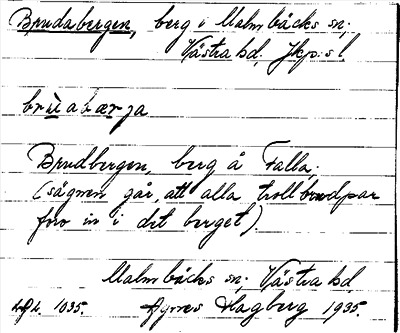 Brudabergen, berg i Malmbäcks sn;
Västra hd. Jkp:s l.
bruabærja
Brudbergen, berg å Falla.
(sägnen går, att alla trollbrudpar
foro in i det berget).
Malmbäcks sn; Västra hd
1035. Hagberg 1935.